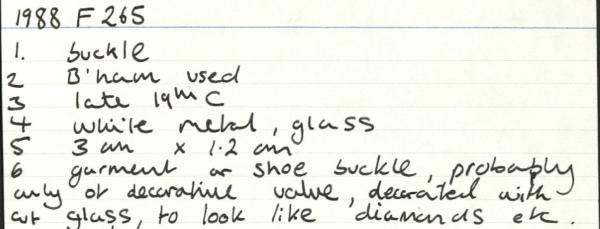 1988 F 265
1. buckle
2 B'ham used
3 late 19th C
4 white metal, glass
5 3 cm x 1.2 cm
6 garment or shoe buckle, probably
only of decorative value, decorated with
cut glass, to look like diamonds etc.